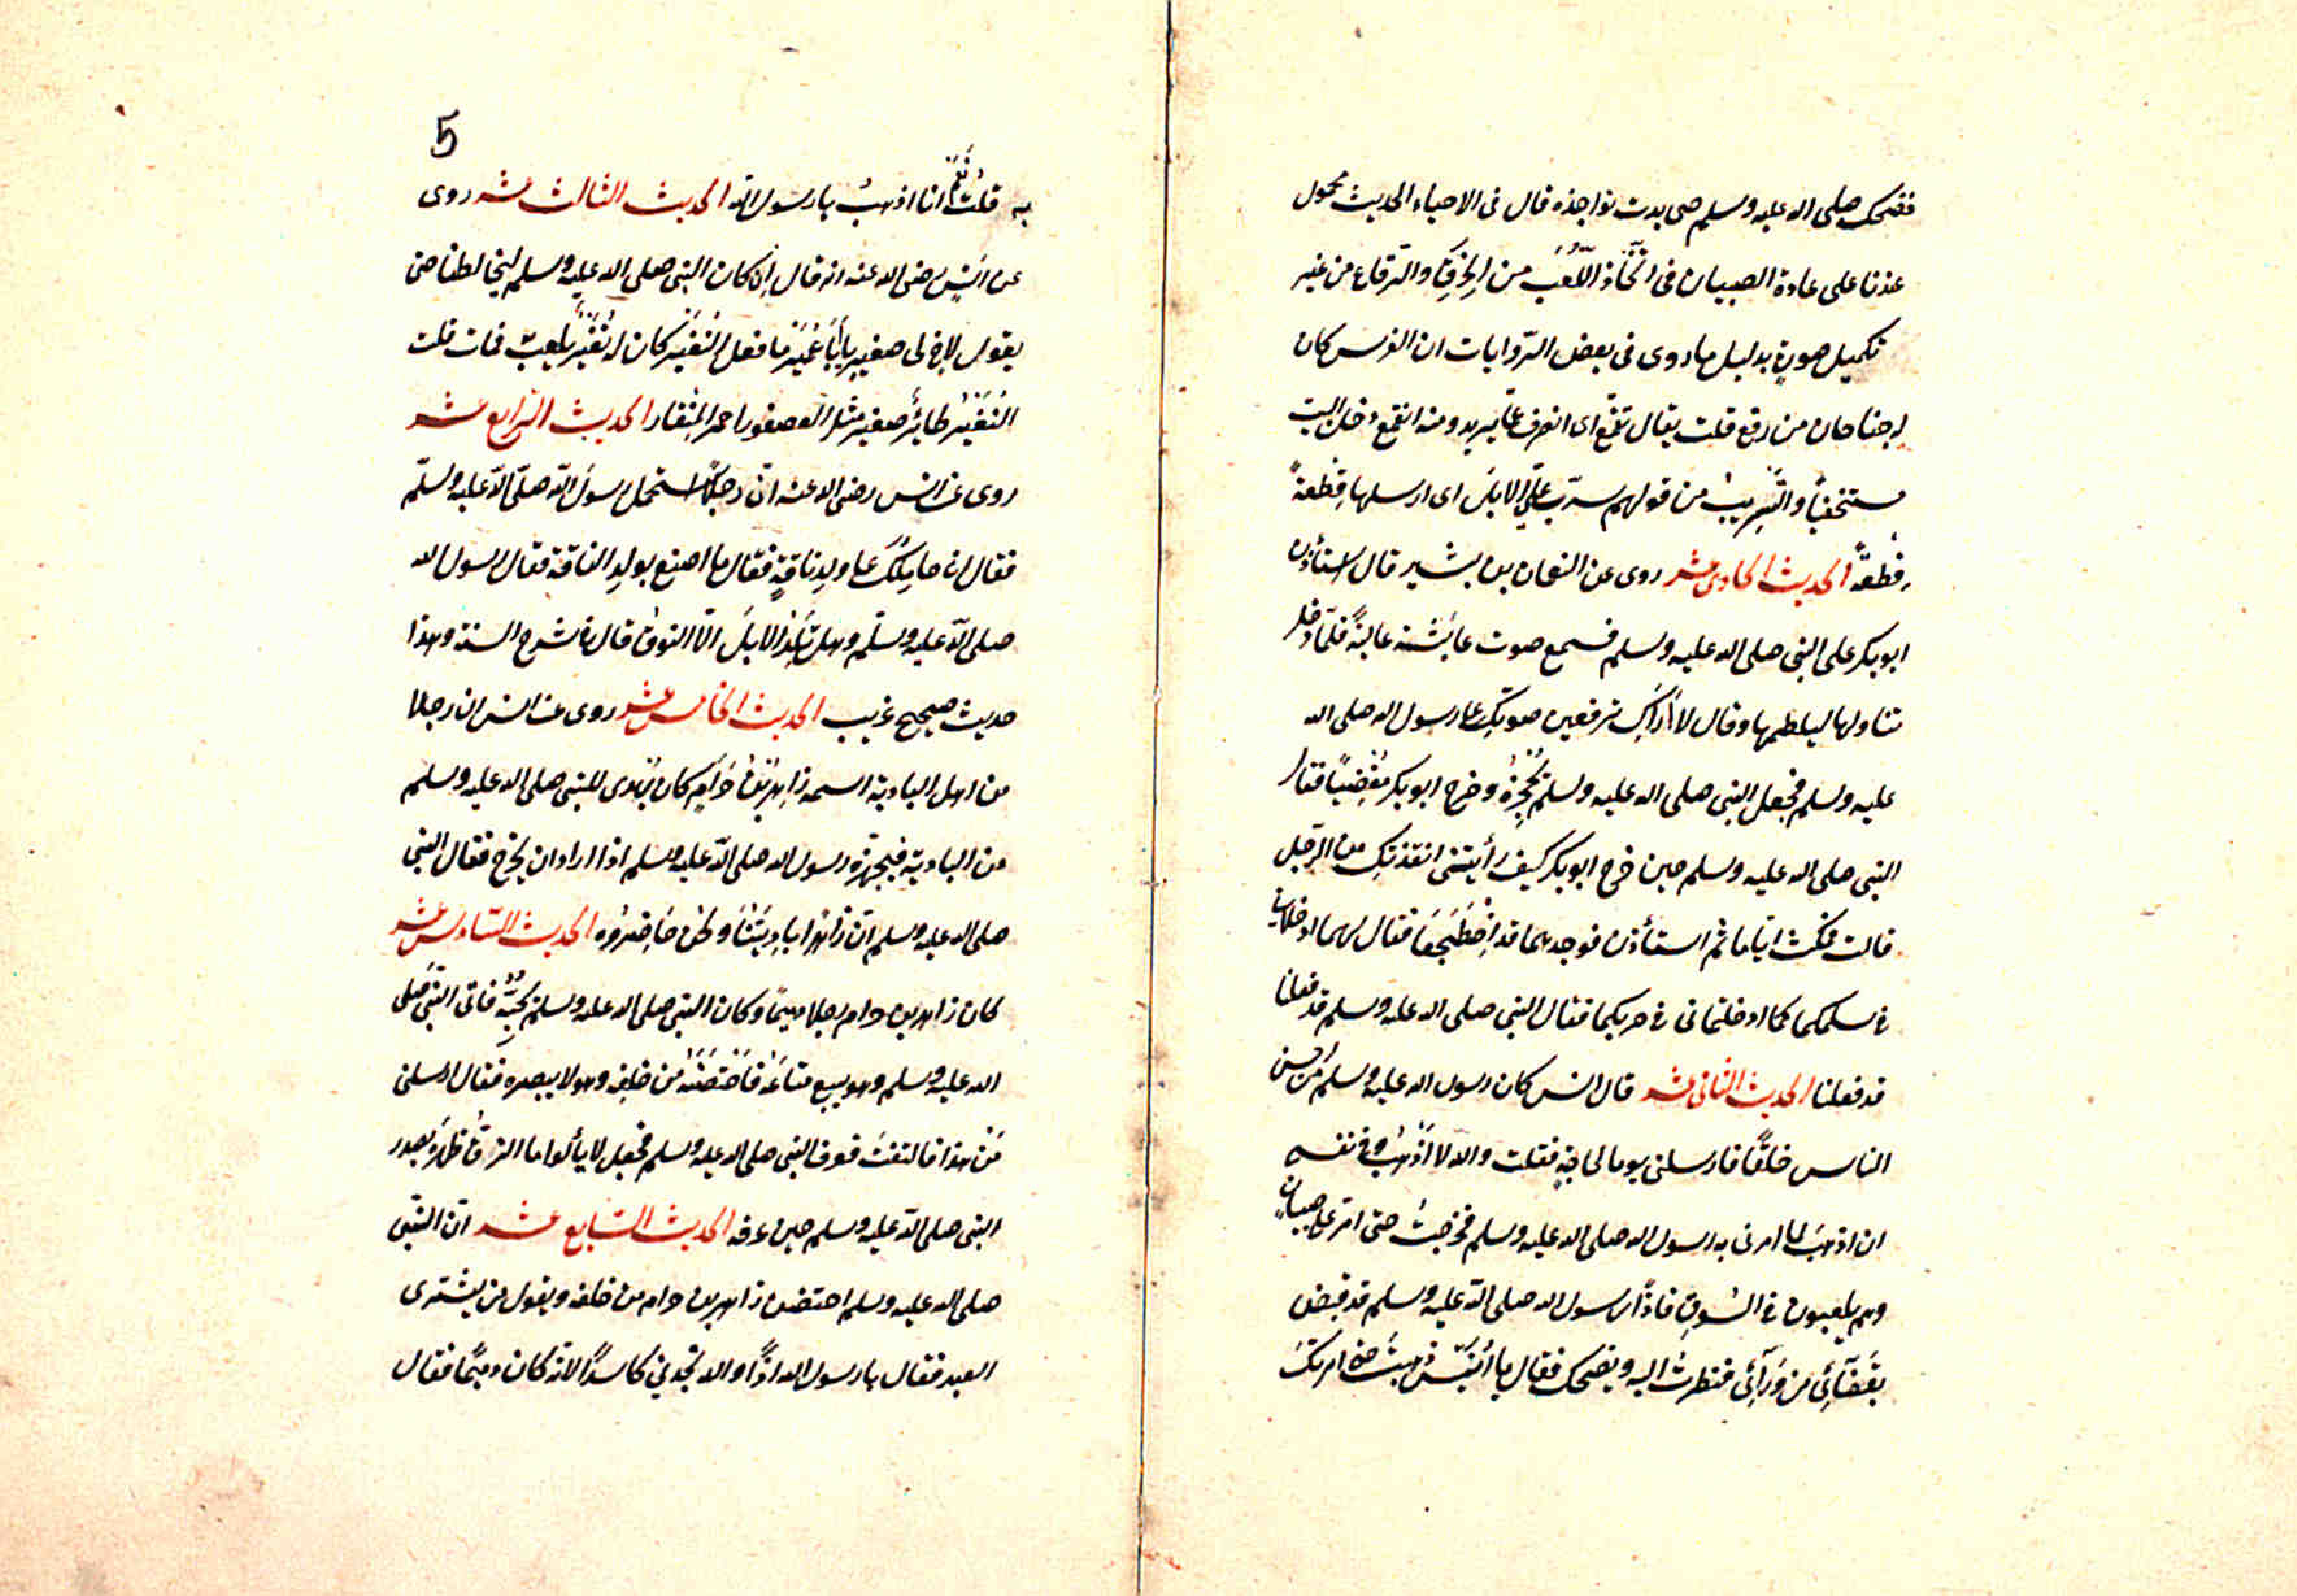 فضحك صلى الله عليه وسلم حتى بدت نواجذه قال فى الاحياء الحديث محمول
عندنا على عادة الصبيان فى اتّخاذ اللُّعَب من الخِرَقِ والرّقاع من غير
تكميل صورة بدليل ما روى فى بعض الرّوايات ان الفرس كان
له جناحان من رقع قلت يقال تقمّع اى انصرف عمّا يريد ومنه انقمع دخل البيت
مستخفياً والتَّسْريبُ من قولهم سرّب علىّ الابل اى ارسلها قِطْعةً
قطعةً الحديث الحادى عشر روى عن النعمان بن بشير قال استأذن
ابو بكر على النبى صلى الله عليه وسلم فسمع صوت عائشة عالياً فلمّا دخل
تناولها ليلطمها وقال لا أراكِ ترفعين صوتكِ على رسول الله صلى الله
عليه وسلم فجعل النبى صلى الله عليه وسلم يَحْجُزُهُ وخرج ابو بكر مُغْضِباً فقال
النبى صلى الله عليه وسلم حين خرج ابو بكر كيف رأيتنى انقذتكِ من الرّجل
قالت فمكث ايّاما ثم استأذن فوجدهما قد اضْطَجَعَا فقال لهما ادخلانى
فى سلمكما كما ادخلتمانى فى حربكما فقال النبى صلى الله عليه وسلم قد فعلنا
قد فعلنا الحديث الثانى عشر قال انس كان رسول الله عليه وسلم من احسن
الناس خلقًا فارسلنى يوما لحاجةٍ فقلت والله لا أذْهَبُ وفى نفسى
ان اذهبَ لما امرنى به رسول الله صلى الله عليه وسلم فخرجتُ حتى امرّ على صبيانٍ
وهم يلعبون فى السُّوقِ فاذًا رسول الله صلى الله عليه وسلم قد قبض
بقَفَآئِى من وَرَآئِى فنظرتُ اليه ويضحك فقال يا أُنَيْسُ ذهبتَ حيث امرتُكَ
5
به قلتُ نَعَمْ انا اذهبُ يا رسول الله الحديث الثالث عشر روى
عن انَسٍ رضى الله عنه انه قال إنْ كان النبى صلى الله عليه وسلم ليخالطنا حتى
يقول لاخ لى صغيرٍ يا أَبَا عُمَيْرٍ ما فعل النُّغَيْر كان له نُغَيْرٌ يلعب فمات قلت
النُّغَيْرُ طائرٌ صغير مثل العصفور احمر المِنْقار الحديث الرّابع عشر
روى عن انس رضى الله عنه انّ رجلاً استحمل رسول الله صلّى الله عليه وسلّم
فقال انى حاملكَ على ولد ناقةٍ فقال ما اصنع بولد الناقة فقال رسول الله
صلى الله عليه وسلّم وهل تَلِدُ الابلَ الّا النوقُ قال فى شرح السنة وهذا
حديث صحيح غريب الحديث الخامس عشر روى عن انس ان رجلا
من اهل البادية اسمه زاهِرُ بْنُ حَرَامٍ كان يُهْدى للنبى صلى الله عليه وسلم
من البادية فيجهزه رسول الله صلى الله عليه وسلم اذا اراد ان يخرج فقال النبى
صلى الله عليه وسلم انّ زاهرًا بادِيَتُنَا ونحن حَاضِرُوه الحديث السّادس عشر
كان زاهر بن حرام رجلا دميمًا وكان النبى صلى الله عليه وسلم يُحِبُّه فاتى النبى صَلى
الله عليه وسلم وهو يبيع متاعَهُ فَاحْتَضَنَهُ من خلفِه وهو لا يبصره فقال ارسلنى
مَنْ هذا فالتفتَ فعرف النبى صلى الله عليه وسلم فجعل لا يألوا ما الزقَ ظهرَهُ بصدر
النبى صلى الله عليه وسلم حين عرفه الحديث السّابع عشر انّ النبّى
صلى الله عليه وسلم احتضن زاهر بن حرام من خلفه ويقول من يشترى
العبد فقال يا رسول الله اذًا والله تجدنى كاسدًا لانّه كان دميمًا فقال